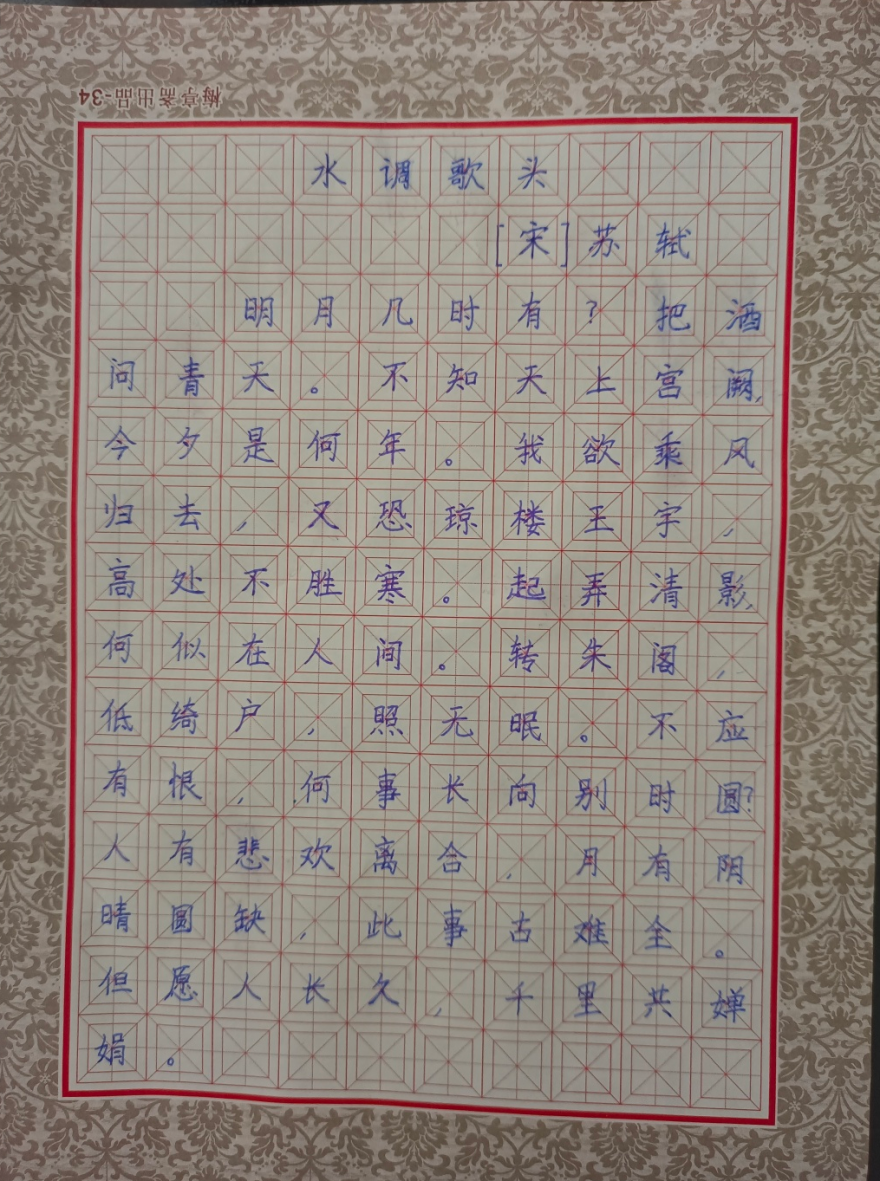 梅亭斋出品-34
水调歌头
[宋]苏轼
明月几时有？把酒
问青天。不知天上宫阙，
今夕是何年。我欲乘风
归去，又恐琼楼玉宇，
高处不胜寒。起弄清影，
何似在人间。转朱阁，
低绮户，照无眠。不应
有恨，何事长向别时圆？
人有悲欢离合，月有阴
晴圆缺，此事古难全。
但愿人长久，千里共婵
娟。